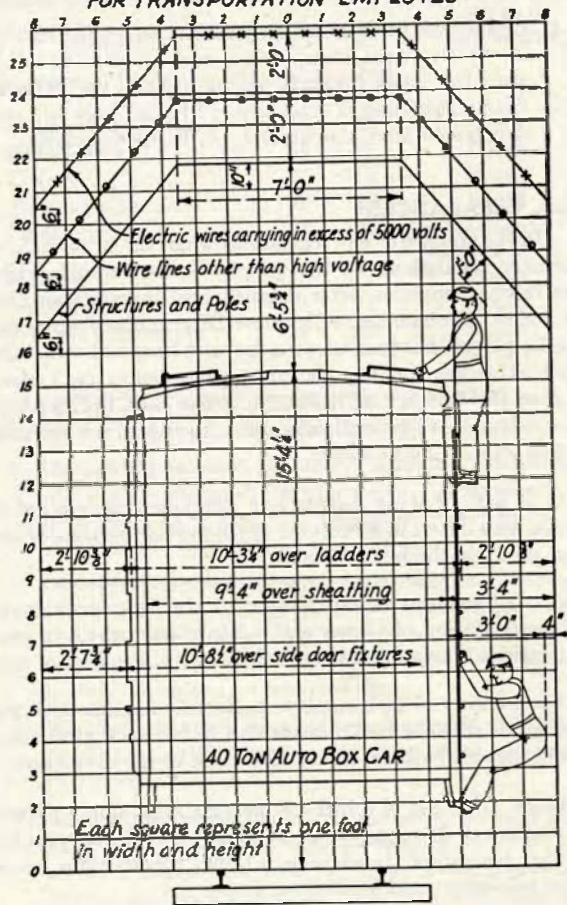 FOR TRANSPORTATION EMPLOYEES
8 7 6 5 4 3 2 1 0 1 2 3 4 5 6 7 8
25
24
23
22
21
20
19
18
17
16
15
14
13
12
11
10
9
8
7
6
5
4
3
2
1
0
2'-0"
2'-0"
10"
7'-0"
6"
Electric wires carrying in excess of 5000 volts
6"
Wire lines other than high voltage
6'-5 3/4"
Structures and Poles
6"
15'-4 1/4"
2'-10 3/8"
10'-3 1/4" over ladders
2'-10 3/8"
9'-4" over sheathing
3'-4"
3'-0"
4"
2'-7 3/4"
10'-8 1/2" over side door fixtures
40 TON AUTO BOX CAR
Each square represents one foot
in width and height